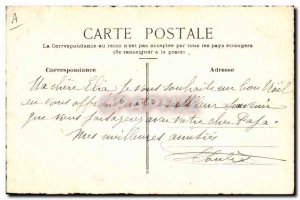 A
CARTE POSTALE
La Correspondance au recto n'est pas acceptée par tous les pays étrangers
(Se renseigner à la poste)
Correspondance
Adresse
Ma chère Elia je vous souhaite un bon Noël
en vous offrant notre meilleur souvenir
que vous partagerez avec votre cher Papa.
Mes meilleures amitiés